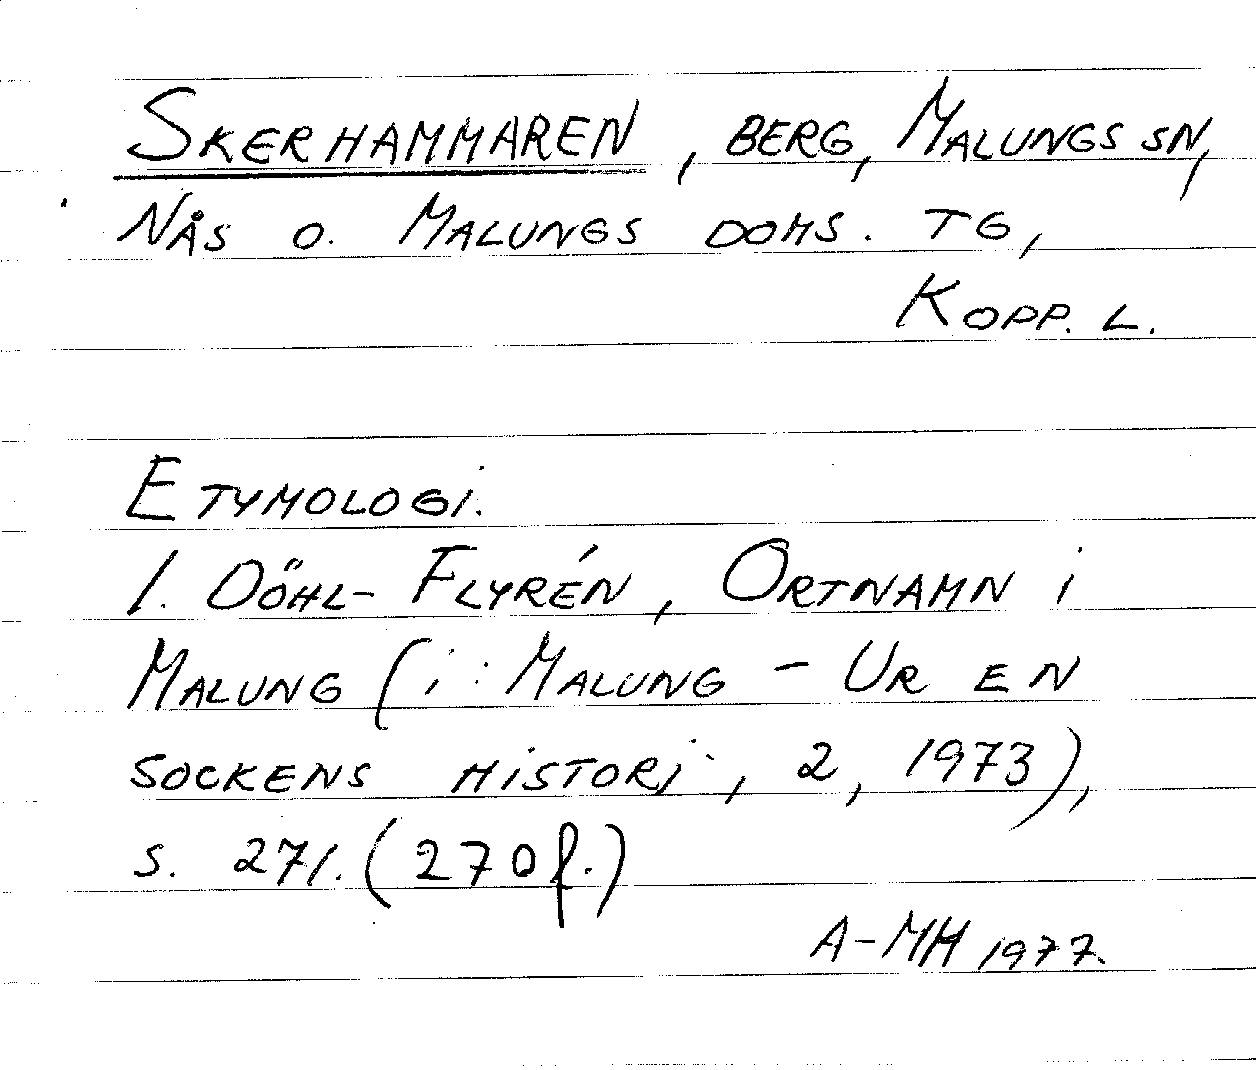 SKERHAMMAREN, BERG, MALUNGS SN,
NÅS O. MALUNGS DOMS. TG,
KOPP. L.
ETYMOLOGI.
I. DÖHL-FLYRÉN, ORTNAMN I
MALUNG (I: MALUNG - UR EN
SOCKENS HISTORI, 2, 1973),
S. 271. (270 f.)
A-MH 1977.